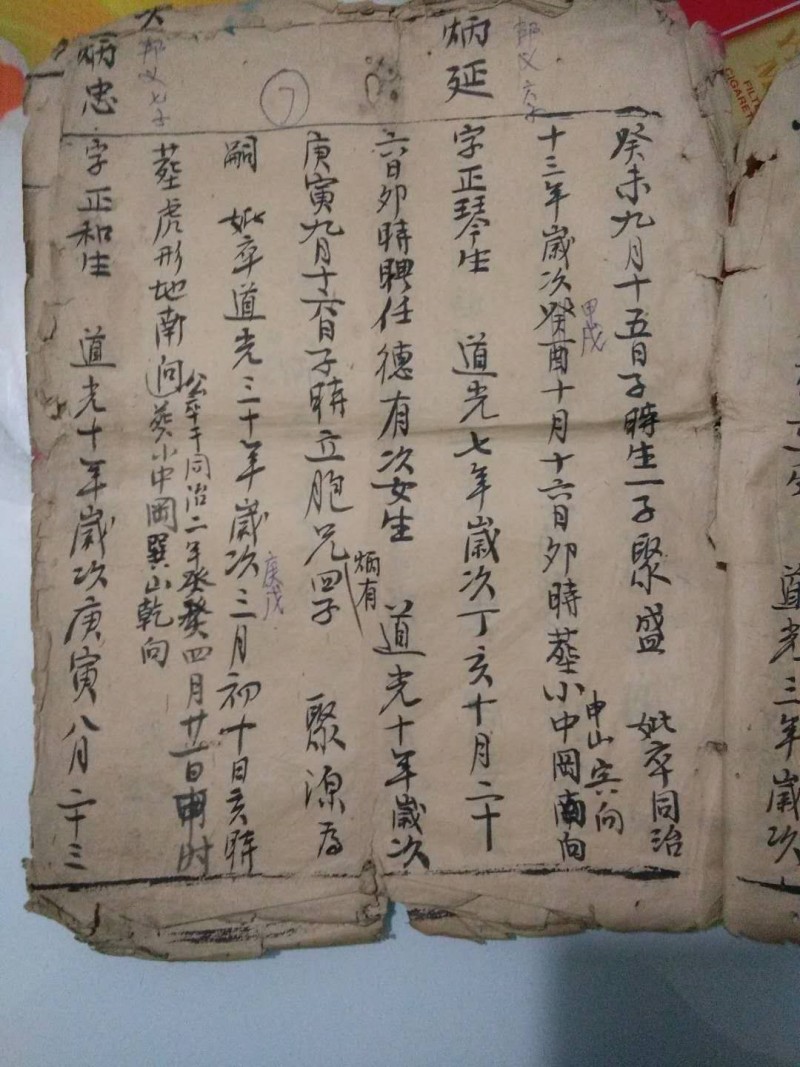 癸未九月十五日子時生一子聚盛 妣卒同治
十三年歲次癸酉十月十六日卯時葬小中岡南向
甲戌
申山寅向
炳延
邦义六子
字正琴生 道光七年歲次丁亥十月二十
六日卯時聘任德有次女生 道光十年歲次
庚寅九月十六日子時立胞兄四子 聚源為
炳有
7
嗣 妣卒道光三十年歲次三月初十日亥時
庚戌
公卒于同治二年癸癸四月廿一日申时
葬虎形地南向葬小中岡巽山乾向
炳忠
邦义七子
字正和生 道光十年歲次庚寅八月二十三
道光三年歲次
FILTER
CIGARET